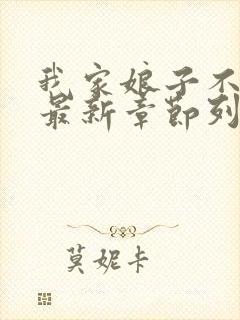 我家娘子不
最新章节列
莫妮卡